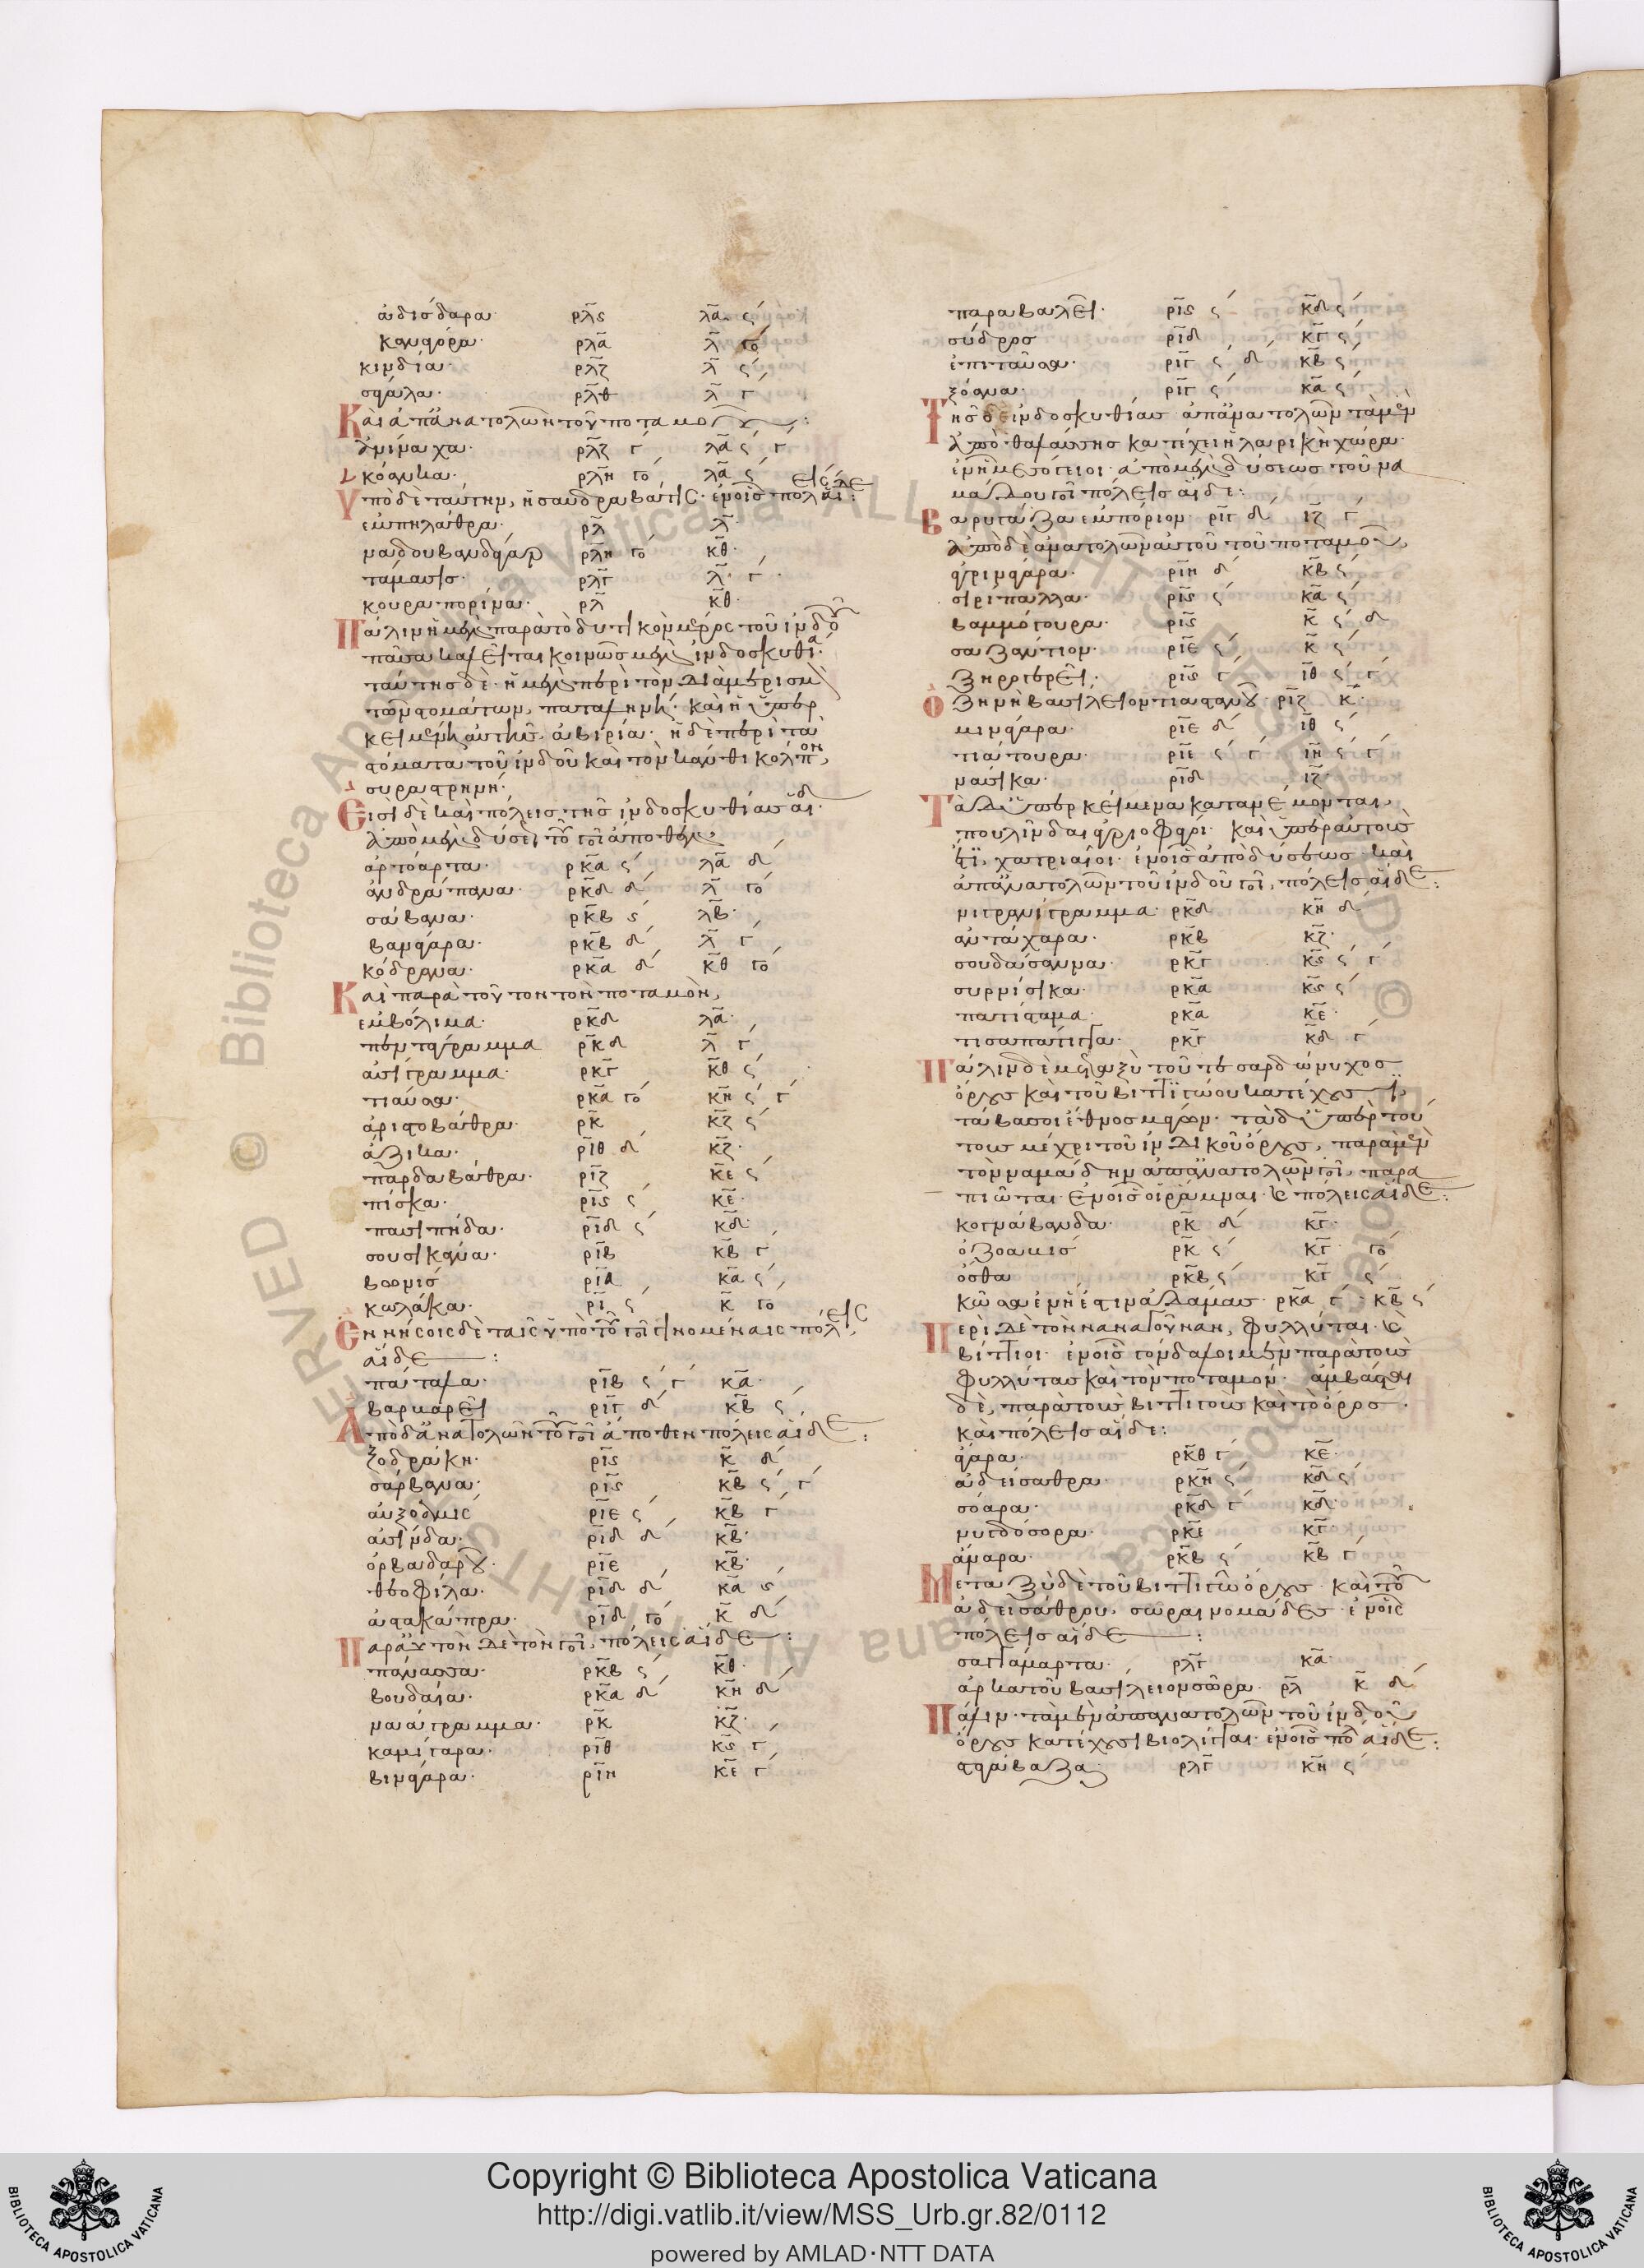 ἀδισδαρα ρλς λα ς
κανφόρα ρλα λ γο
κινδία ρλζ λ ς
σφάλα ρλθ λ γ
Καὶ ἀπἀνατολῶν τοῦ ποταμοῦ:
ἀμίναχα ρλζ γ λα ς γ
ρλη γο λα ς
Ὑπὸ δὲ ταύτην,
ρλ λ
ρλη γο κθ
τάμασις ρλγ λ γ
κουραπορίνα ρλ κθ
Πάλιν ἡ μὲν παρὰ τὸ δυτικὸν μέρος τοῦ ἰνδοῦ
πᾶσα καλεῖται κοινῶς μὲν ἰνδοσκυθία
ταύτης δὲ ἡ μὲν περὶ τὸν διαμερισμὸ
τῶν στομάτων, παταληνή. καὶ ἡ ὑπερ
κειμένη αὐτῆς ἀβιρία. ἡ δὲ περὶ τὰ
στόματα τοῦ ἰνδοῦ καὶ τὸν κάνθι κόλπον,
συραστρηνή.
Εἰσὶ δὲ καὶ πόλεις τῆς ἰνδοσκυθίας αἵδ
ἀπὸ μὲν δύσεως τοῦ ποταμοῦ ἄποθεν
ἀρτόαρτα ρκα ς λα δ
ἀνδράπανα ρκδ δ λ γο
σάβανα ρκβ ς λβ
βαναγάρα ρκβ δ λ γ
κόδρανα ρκα δ κθ γο
Καὶ παρὰ τοῦτον τὸν ποταμὸν,
ἐμβόλιμα ρκδ λα
πεντάγραμμα ρκδ λ γ
ἀσίγραμμα ρκγ κθ ς
τιαύσα ρκα γο κη ς γ
ἀριστοβάθρα ρκ κζ ς
ἀζικα ριθ δ κζ
παρδαβάθρα ριζ κε ς
πίσκα ρις ς κε
πασιπήδα ριδ ς κδ
σουσικάνα ριβ κβ γ
βοονίς ρια κα ς
κωλάκα ρι ς κ γο
Ἐν νήσοις δὲ ταῖς ὑπὸ τοῦ ποταμοῦ γινομέναις πόλεις
αἵδε:
πάταλα ριβ ς γ κα
βαρβαρεῖ ριγ δ κβ ς
Ἀπὸ δ ἀνατολῶν τοῦ ποταμοῦ ἄποθεν πόλεις αἵδε:
ξοδράκη ρις κ δ
σάρβανα ρις κβ ς γ
αὐξόαμις ριε ς κβ γ
ἀσίνδα ριδ δ κβ
ὀρβαδαροῦ ριε κβ
θεοφίλα ριδ δ κα ς
ἀστακάπρα ριδ γο κ δ
Παρ αὐτὸν δὲ τὸν ποταμόν, πόλεις αἵδε:
πάνασσα ρκβ ς κθ
βουδαία ρκα δ κη δ
ναάγραμμα ρκ κζ
καμίγαρα ριθ κς γ
βιναγάρα ριη κε γ
παραβαλεῖ ρις ς κδ ς
σύδρος ριδ κγ ς
ἐπιταῦσα ριγ ς δ κβ ς
ξόανα ριγ ς κα ς
Τῆς δὲ ἰνδοσκυθίας ἀπἀνατολῶν τὰ μὲν
ἀπὸ θαλάσσης κατέχει ἡ λαρικὴ χώρα
ἐν ᾗ μεσόγειοι ἀπὸ μὲν δύσεως τοῦ να
μάδου ποταμοῦ πόλεις αἵδε:
βαρυγάζα ἐμπόριον ριγ δ ιζ γ
ἀπὸ δὲ ἀνατολῶν αὐτοῦ τοῦ ποταμοῦ
ἀγριναγάρα ριη δ κβ ς
σιρίπαλλα ρις ς κα ς
βαμμόγουρα ρις κ ς δ
σαζάντιον ριε ς κ ς
ζηρογερεῖ ρις γ ιθ ς γ
ὀζήνη βασίλειον τιαστανοῦ ριζ κ
μινάγαρα ριε δ ιθ ς
τιάτουρα ριε ς γ ιη ς γ
νάσικα ριδ ιζ
Τὰ δ ὑπερκείμενα κατανέμονται
πουλίνδαι ἀγριοφάγοι καὶ ὑπὲρ αὐτοὺς
χατριαῖοι ἐν οἷς ἀπὸ δύσεως καὶ
ἀπἀνατολῶν τοῦ ἰνδοῦ ποταμοῦ, πόλεις αἵδε:
νιγρανίγραμμα ρκδ κη δ
ἀντάχαρα ρκβ κζ
σουδάσαννα ρκγ κς ς γ
συρνίσικα ρκα κς ς
πατίσταμα ρκα κε
τισαπάτιγγα ρκγ κδ γ
Πάλιν δὲ μεταξὺ τοῦ τε σαρδώνυχος
ὄρους καὶ τοῦ βιττιγώου κατέχουσι
τάβασοι ἔθνος μάγων. τὰ δ ὑπὲρ τού
τους μέχρι τοῦ ἰνδικοῦ ὄρους, παρὰ μὲν
τὸν ναμάδην ἀπἀνατολῶν ποταμοῦ, παρα
πιῶται ἐν οἷς οἱ ῥάμναι πόλεις αἵδε:
κοσμάβανδα ρκ δ κγ
ὀζοαμίς ρκ ς κγ γο
ὄσθα ρκβ ς κγ ς
κῶσα ἐν ᾗ ἐστιν ἀδάμας ρκα γ κβ ς
Περὶ δὲ τὸν ναναγούναν, φυλλίται
βίττιοι ἐν οἷς γόνδαλοι μὲν παρὰ τοὺς
φυλλίτας καὶ τὸν ποταμόν. ἀμβάσται
δὲ, παρὰ τοὺς βιττίγους καὶ τὸ ὄρος.
καὶ πόλεις αἵδε:
ἀγάρα ρκθ γ κε
ἀδείσαθρα ρκη ς κδ ς
σόαρα ρκδ γ κδ
νυγδόσορα ρκε κγ
ἀνάρα ρκβ ς κβ γ
Μεταξὺ δὲ τοῦ βιττιγῶ ὄρους καὶ τοῦ
ἀδεισάθρου, σῶραι νομάδες ἐν οἷς
πόλεις αἵδε:
σαγγάμαρτα ρλγ κα
ἀρκατοῦ βασίλειον σῶρα ρλ κ δ
Πάλιν τὰ μὲν ἀπἀνατολῶν τοῦ ἰνδοῦ
ὄρους κατέχουσι βιολίγγαι ἐν οἷς πόλεις αἵδε:
σταγάβαζα ρλγ κη ς
Copyright © Biblioteca Apostolica Vaticana
http://digi.vatlib.it/view/MSS_Urb.gr.82/0112
powered by AMLAD·NTT DATA
BIBLIOTECA APOSTOLICA VATICANA
BIBLIOTECA APOSTOLICA VATICANA